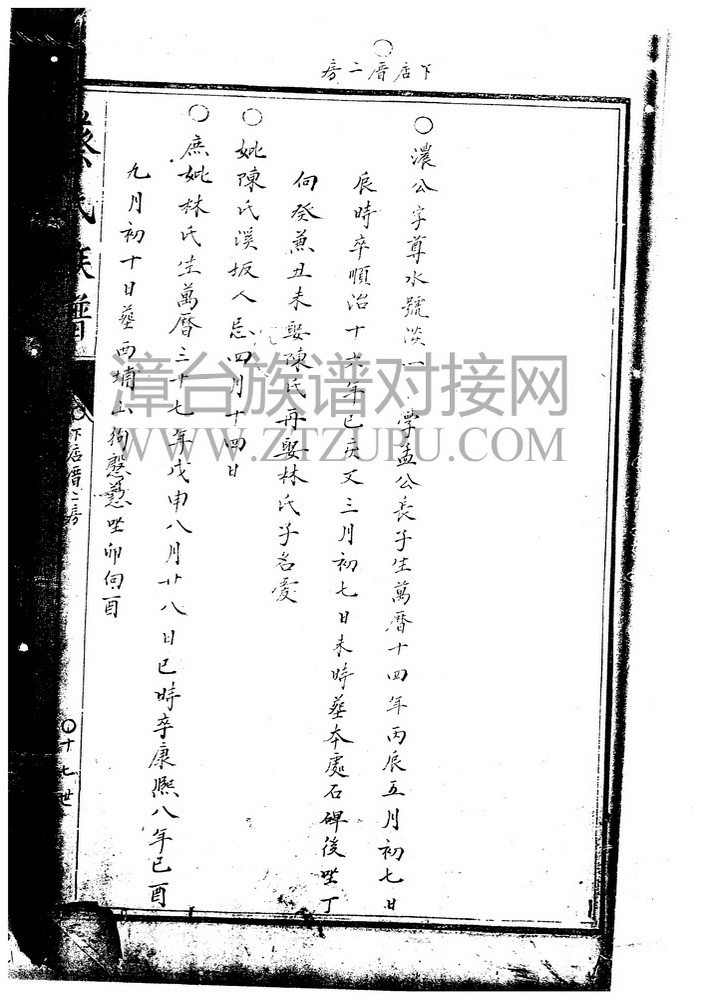 下店厝二房
○濃公字尊水號淡一學孟公長子生萬曆十四年丙辰五月初七日
辰時卒順治十六年己亥又三月初七日未時葬本處石碑後坐丁
向癸兼丑未娶陳氏再娶林氏子名愛
○妣陳氏溪坂人忌四月十四日
○庶妣林氏生萬曆三十七年戊申八月廿八日巳時卒康熙八年己酉
九月初十日葬西埔山狗 坐卯向酉
蔡氏族譜
下店厝二房
○十七世
漳台族谱对接网
WWW.ZTZUPU.COM